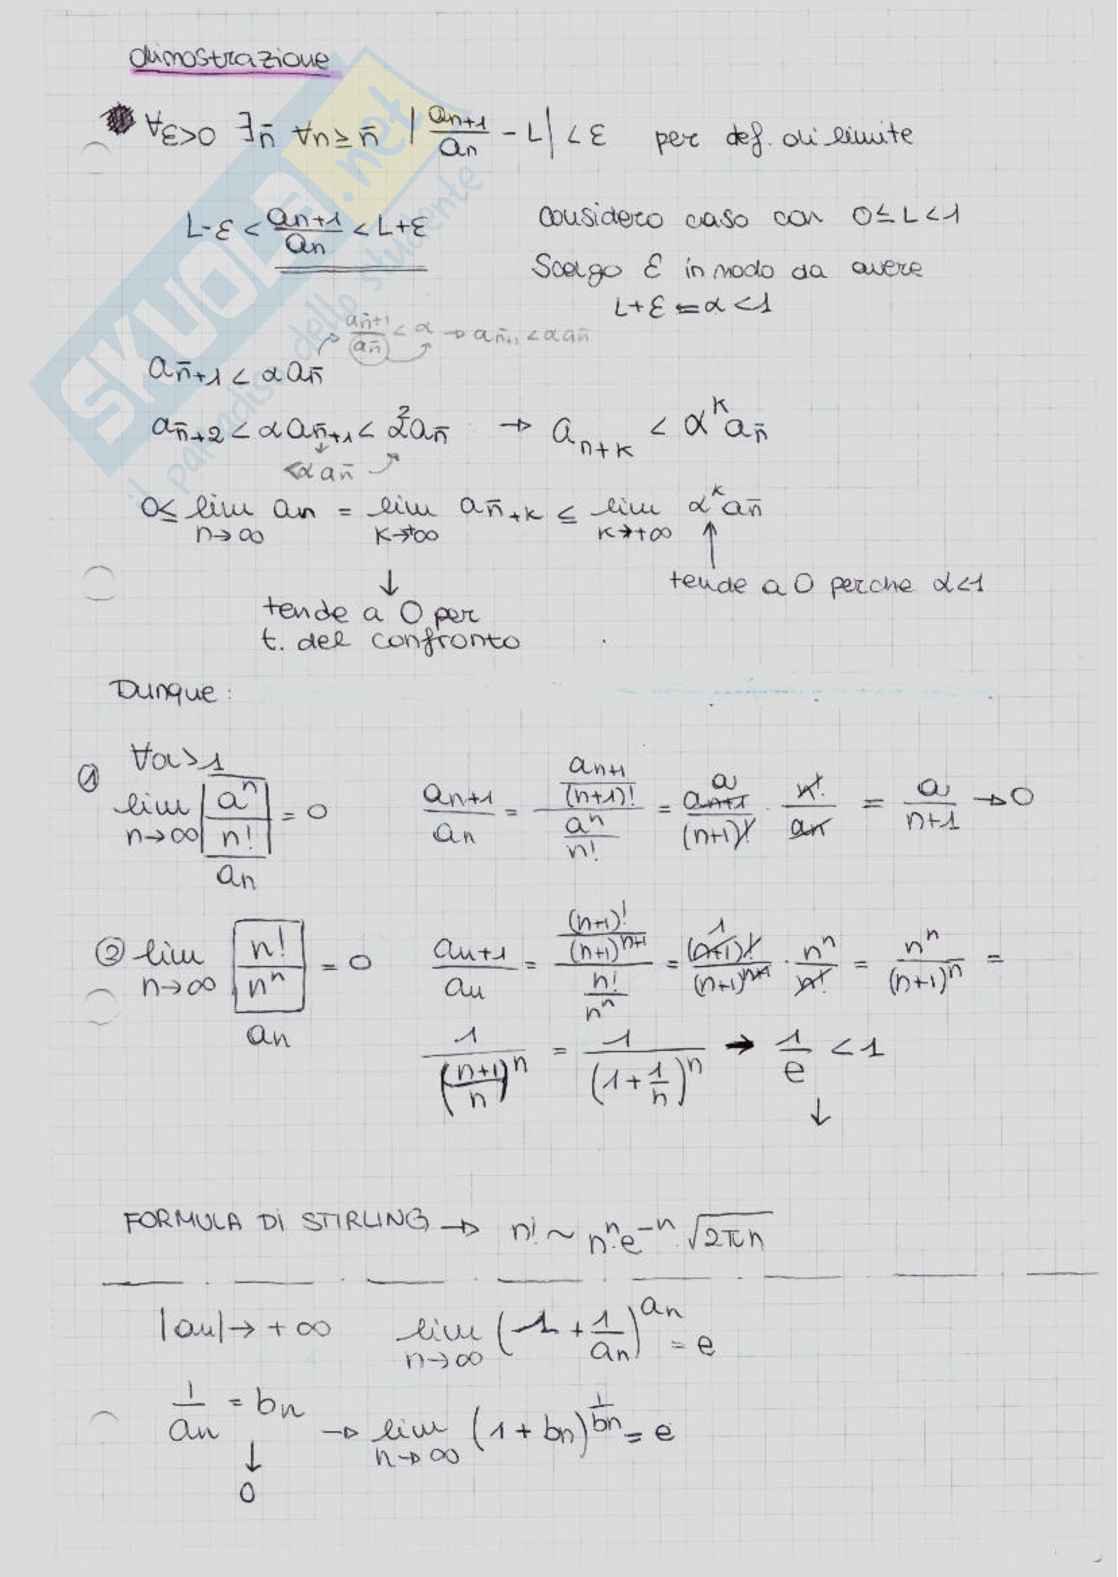 dimostrazione
∀ε>0 ∃n̄ ∀n≥n̄ |aₙ₊₁/aₙ - L| < ε per def. di limite
L-ε < aₙ₊₁/aₙ < L+ε considero caso con 0≤L<1
Scelgo ε in modo da avere
L+ε = α < 1
a_n̄+1/a_n̄ < α → a_n̄+1 < α a_n̄
a_n̄+1 < α a_n̄
a_n̄+2 < α a_n̄+1 < α² a_n̄ → a_n+k < α^k a_n̄
<α a_n̄
0≤ lim n→∞ aₙ = lim k→+∞ a_n̄+k ≤ lim k→+∞ α^k a_n̄
tende a 0 perche α<1
tende a 0 per
t. del confronto
Dunque:
① ∀a>1
lim n→∞ aⁿ/n! = 0 aₙ₊₁/aₙ = (aₙ₊₁/(n+1)!)/(aⁿ/n!) = a aₙ₊₁/(n+1)! · n!/aₙ = a/(n+1) → 0
aₙ
② lim n→∞ n!/nⁿ = 0 aₙ₊₁/aₙ = ((n+1)!/(n+1)ⁿ⁺¹)/(n!/nⁿ) = 1 (n+1)!/(n+1)ⁿ⁺¹ · nⁿ/n! = nⁿ/(n+1)ⁿ =
aₙ
1/((n+1)/n)ⁿ = 1/(1+1/n)ⁿ → 1/e < 1
FORMULA DI STIRLING → n! ~ nⁿ·e⁻ⁿ·√2πn
|aₙ| → +∞ lim n→∞ (1 + 1/aₙ)^aₙ = e
1/aₙ = bₙ → lim n→∞ (1 + bₙ)^(1/bₙ) = e
0
SKUOLA.net
il paradiso dello studente